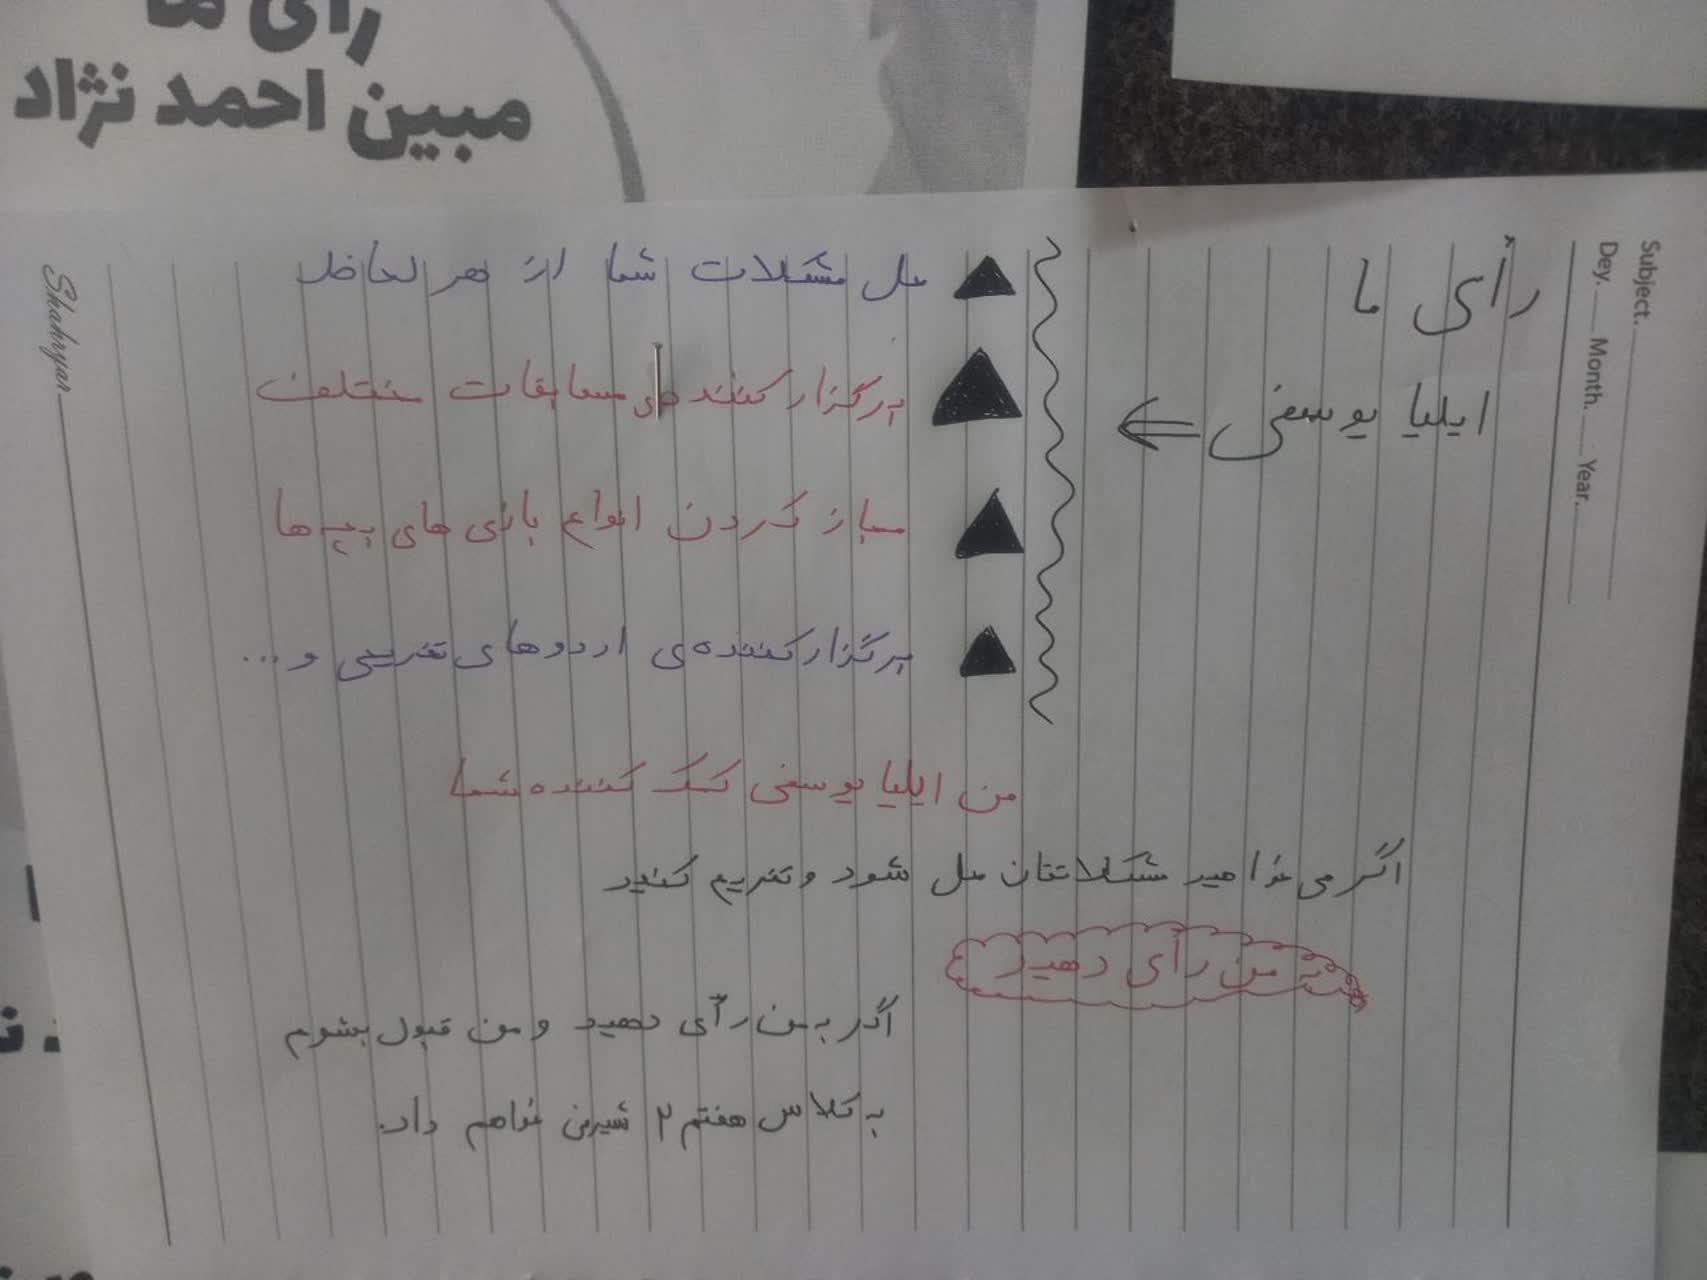 رأی ما
مبین احمد نژاد
Subject.
Dey. Month. Year.
رأی ما
ایلیا یوسفی
حل مشکلات شما از هر لحاظ
برگزار کننده ی مسابقات مختلف
مجاز کردن انواع بازی های بچه ها
برگزار کننده ی اردوهای تفریحی و...
من ایلیا یوسفی کمک کننده شما
اگر می خواهید مشکلاتتان حل شود و تفریح کنید
به من رأی دهید
اگر به من رأی دهید و من قبول بشوم
به کلاس هفتم ۲ شیرینی خواهم داد.
Shahryar